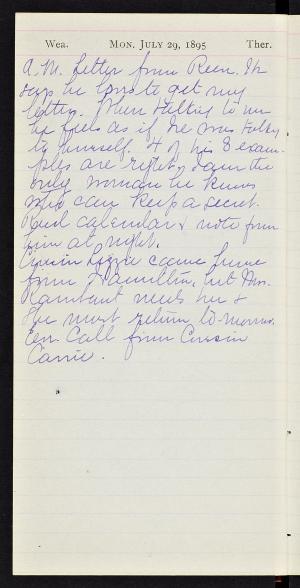 Wea. MON. JULY 29, 1895 Ther.
A.M. Letter from Reen. He
says he loves to get my
letters. When talking to me
he feels as if he was talking
to himself. 4 of his 8 exam-
ples are right. I am the
only woman he knows
who can keep a secret.
Recd calendar & note from
him at night.
Cousin Lizzie came home
from Hamilton, but Mrs.
needs her &
she must return to-morrow.
Eve. Call from Cousin
Carrie.